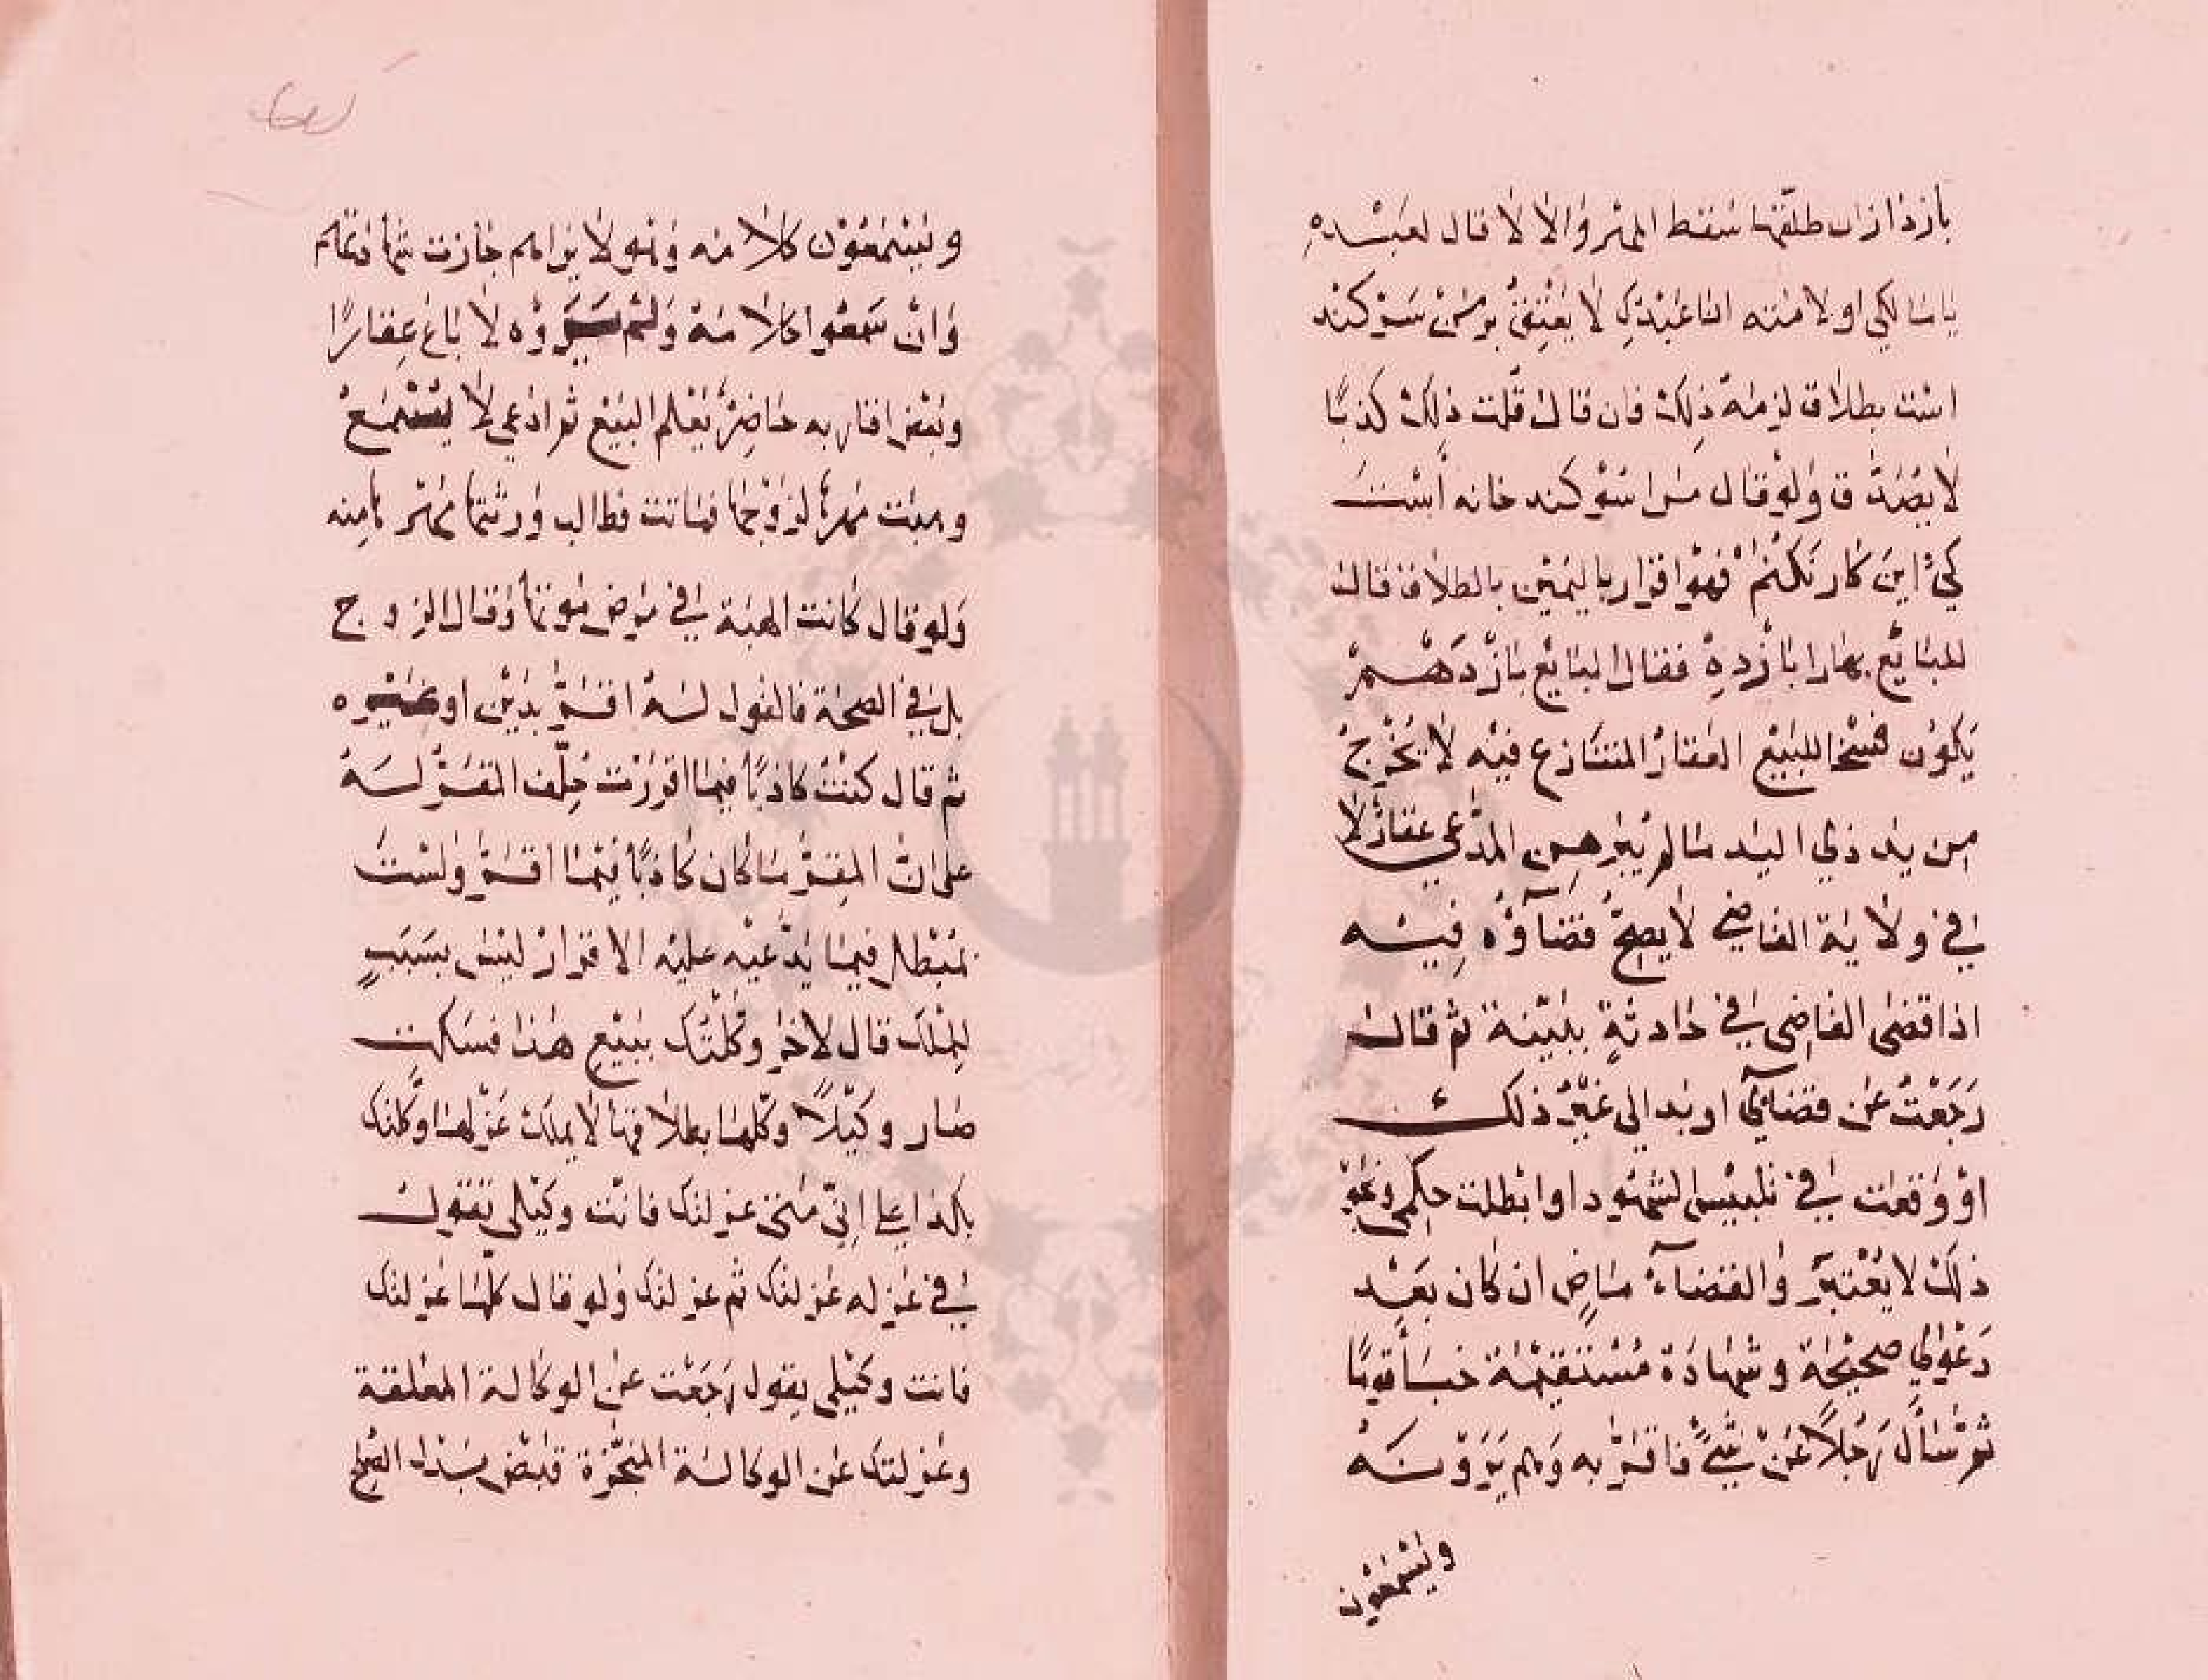 بازدار ان طلقها سقط المهر والا لا قال لعبده
يا مالكي او لامته انا عبدك لا يعتق بر من سوكند
است بطلاق لزمه ذلك فان قال قلت ذلك كذبا
لا يصدق ولو قال مرا سوكند خانه است
كي اين كار نكنم فهو اقرار باليمين بالطلاق قال
للبائع بها را باز ده فقال البائع باز دهم
يكون فسخا للبيع العقار المتنازع فيه لا يخرج
من يد ذي اليد ما لم يبرهن المدعي عقار لا
في ولاية القاضي لا يصح قضاؤه فيه
اذا قضى القاضي في حادثة ببينة ثم قال
رجعت عن قضائي او بدا لي غير ذلك
او وقعت في تلبيس الشهود او ابطلت حكمي ونحو
ذلك لا يعتبر والقضاء ماض ان كان بعد
دعوى صحيحة وشهادة مستقيمة خبأ قوما
ثم سأل رجلا عن شئ فاقر به وهم يرونه
ويسمعون
ويسمعون كلامه وهو لا يراهم جازت شهادتهم
وان سمعوا كلامه ولم يروه لا باع عقارا
وبعض اقاربه حاضر يعلم البيع ثم ادعى لا يسمع
وهبت مهرها لزوجها فماتت فطالب ورثتها بمهرها منه
ولو قال كانت الهبة في مرض موتها وقال الزوج
بل في الصحة فالقول له اقر بدين او غيره
ثم قال كنت كاذبا فيما اقررت حلف المقر له
على ان المقر ما كان كاذبا فيما اقر ولست
بمبطل فيما يدعيه عليه الاقرار ليس بسبب
للملك قال لاخر وكلتك ببيع هذا فسكت
صار وكيلا وكلها بطلاقها لا يملك عزلها وكلتك
بكذا على اني متى عزلتك فانت وكيلي يقول
في عزله عزلتك ثم عزلتك ولو قال كلما عزلتك
فانت وكيلي يقول رجعت عن الوكالة المعلقة
وعزلتك عن الوكالة المنجزة قبض بدل الصلح